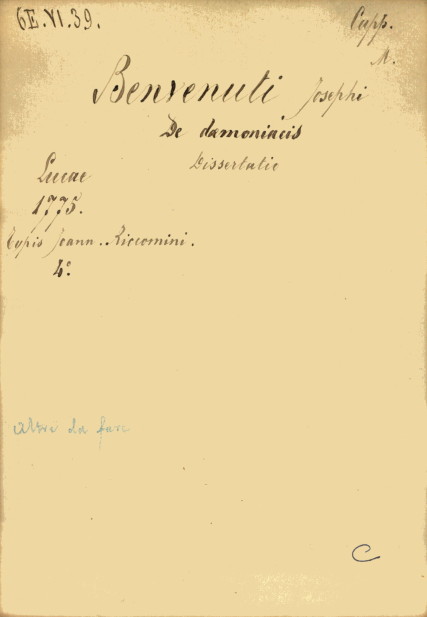 6E.VI.39.
Capp.
M.
Benvenuti Josephi
De damoniacis
Dissertatio
Lucae
1775.
Typis Joann.. Riccomini.
4°.
altri da fare
C